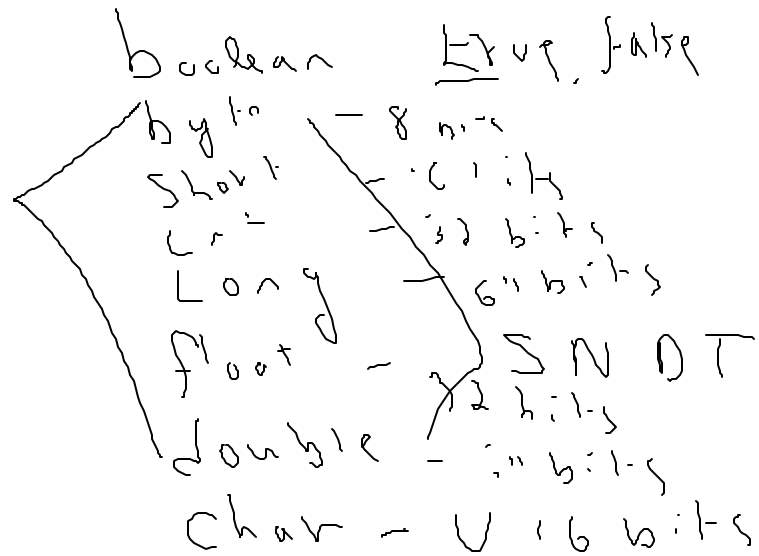 boolean true, false
byte - 8 bits
short - 16 bits
int - 32 bits
Long - 64 bits
float - 32 bits
SNDT
double - bits
Char - U 16 bits